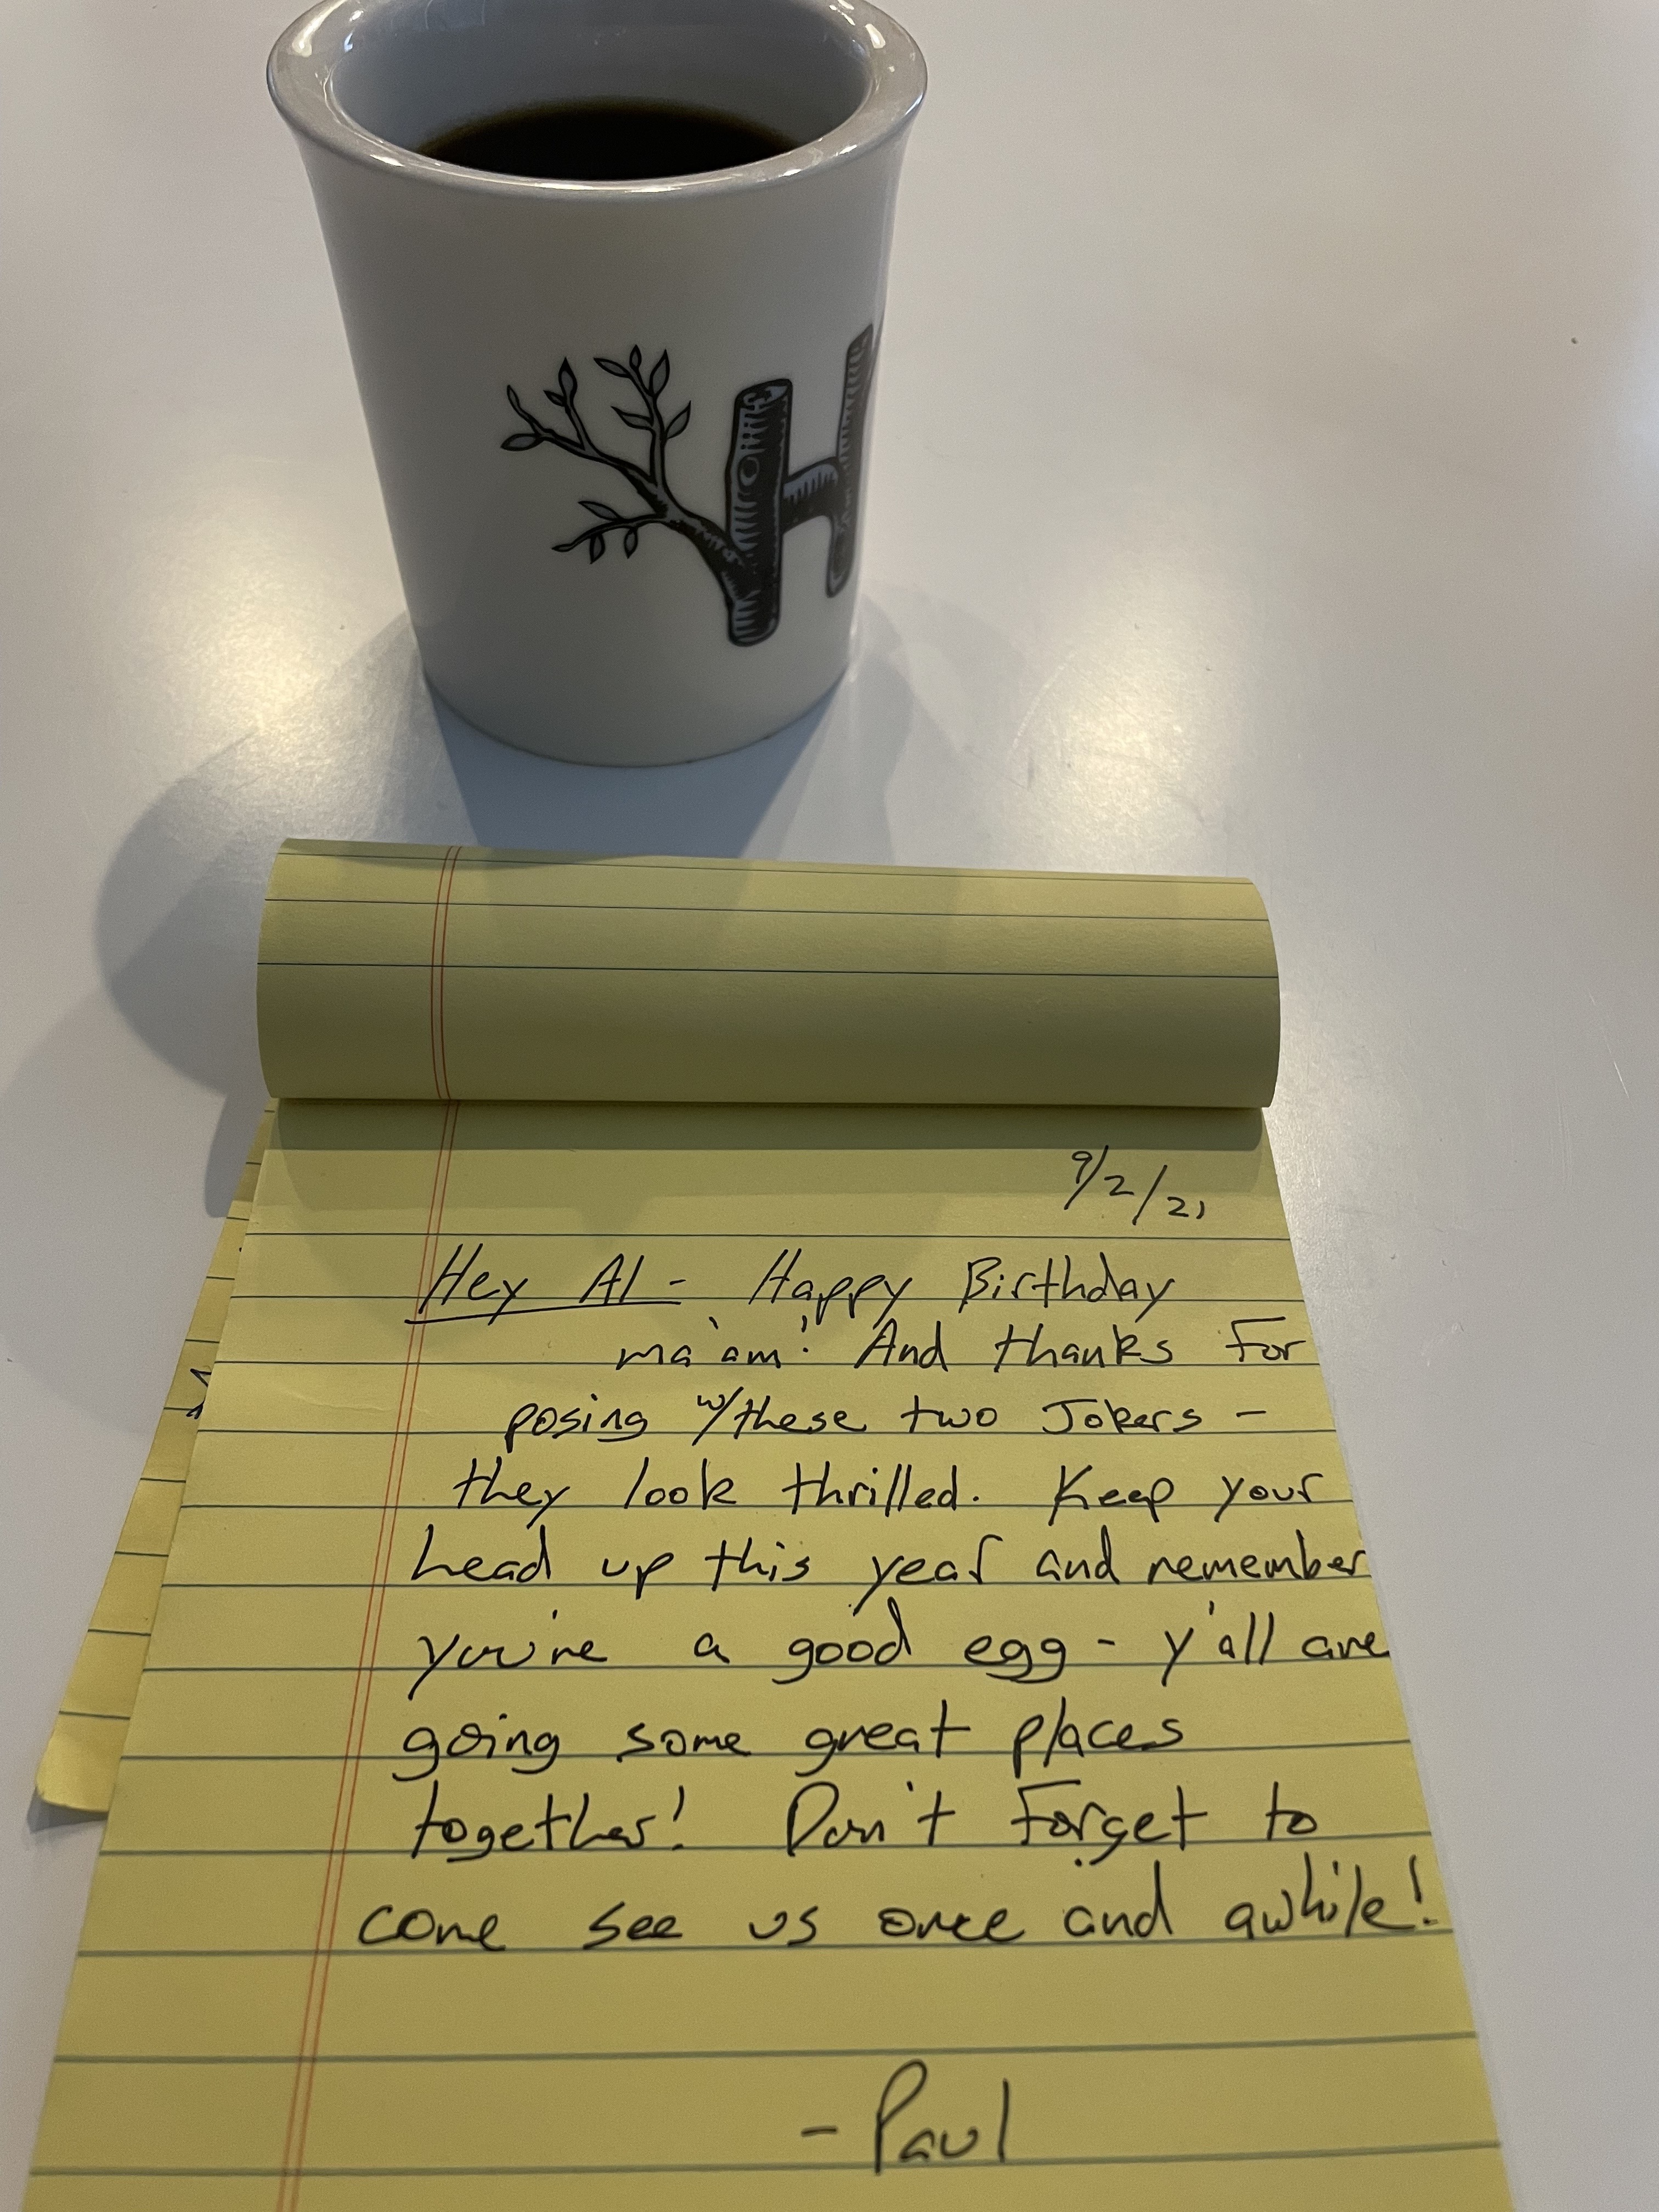 H
9/2/21
Hey Al - Happy Birthday
ma'am! And thanks for
posing w/these two Jokers -
they look thrilled. Keep your
head up this year and remember
you're a good egg - y'all are
going some great places
together! Don't forget to
come see us once and awhile!
- Paul